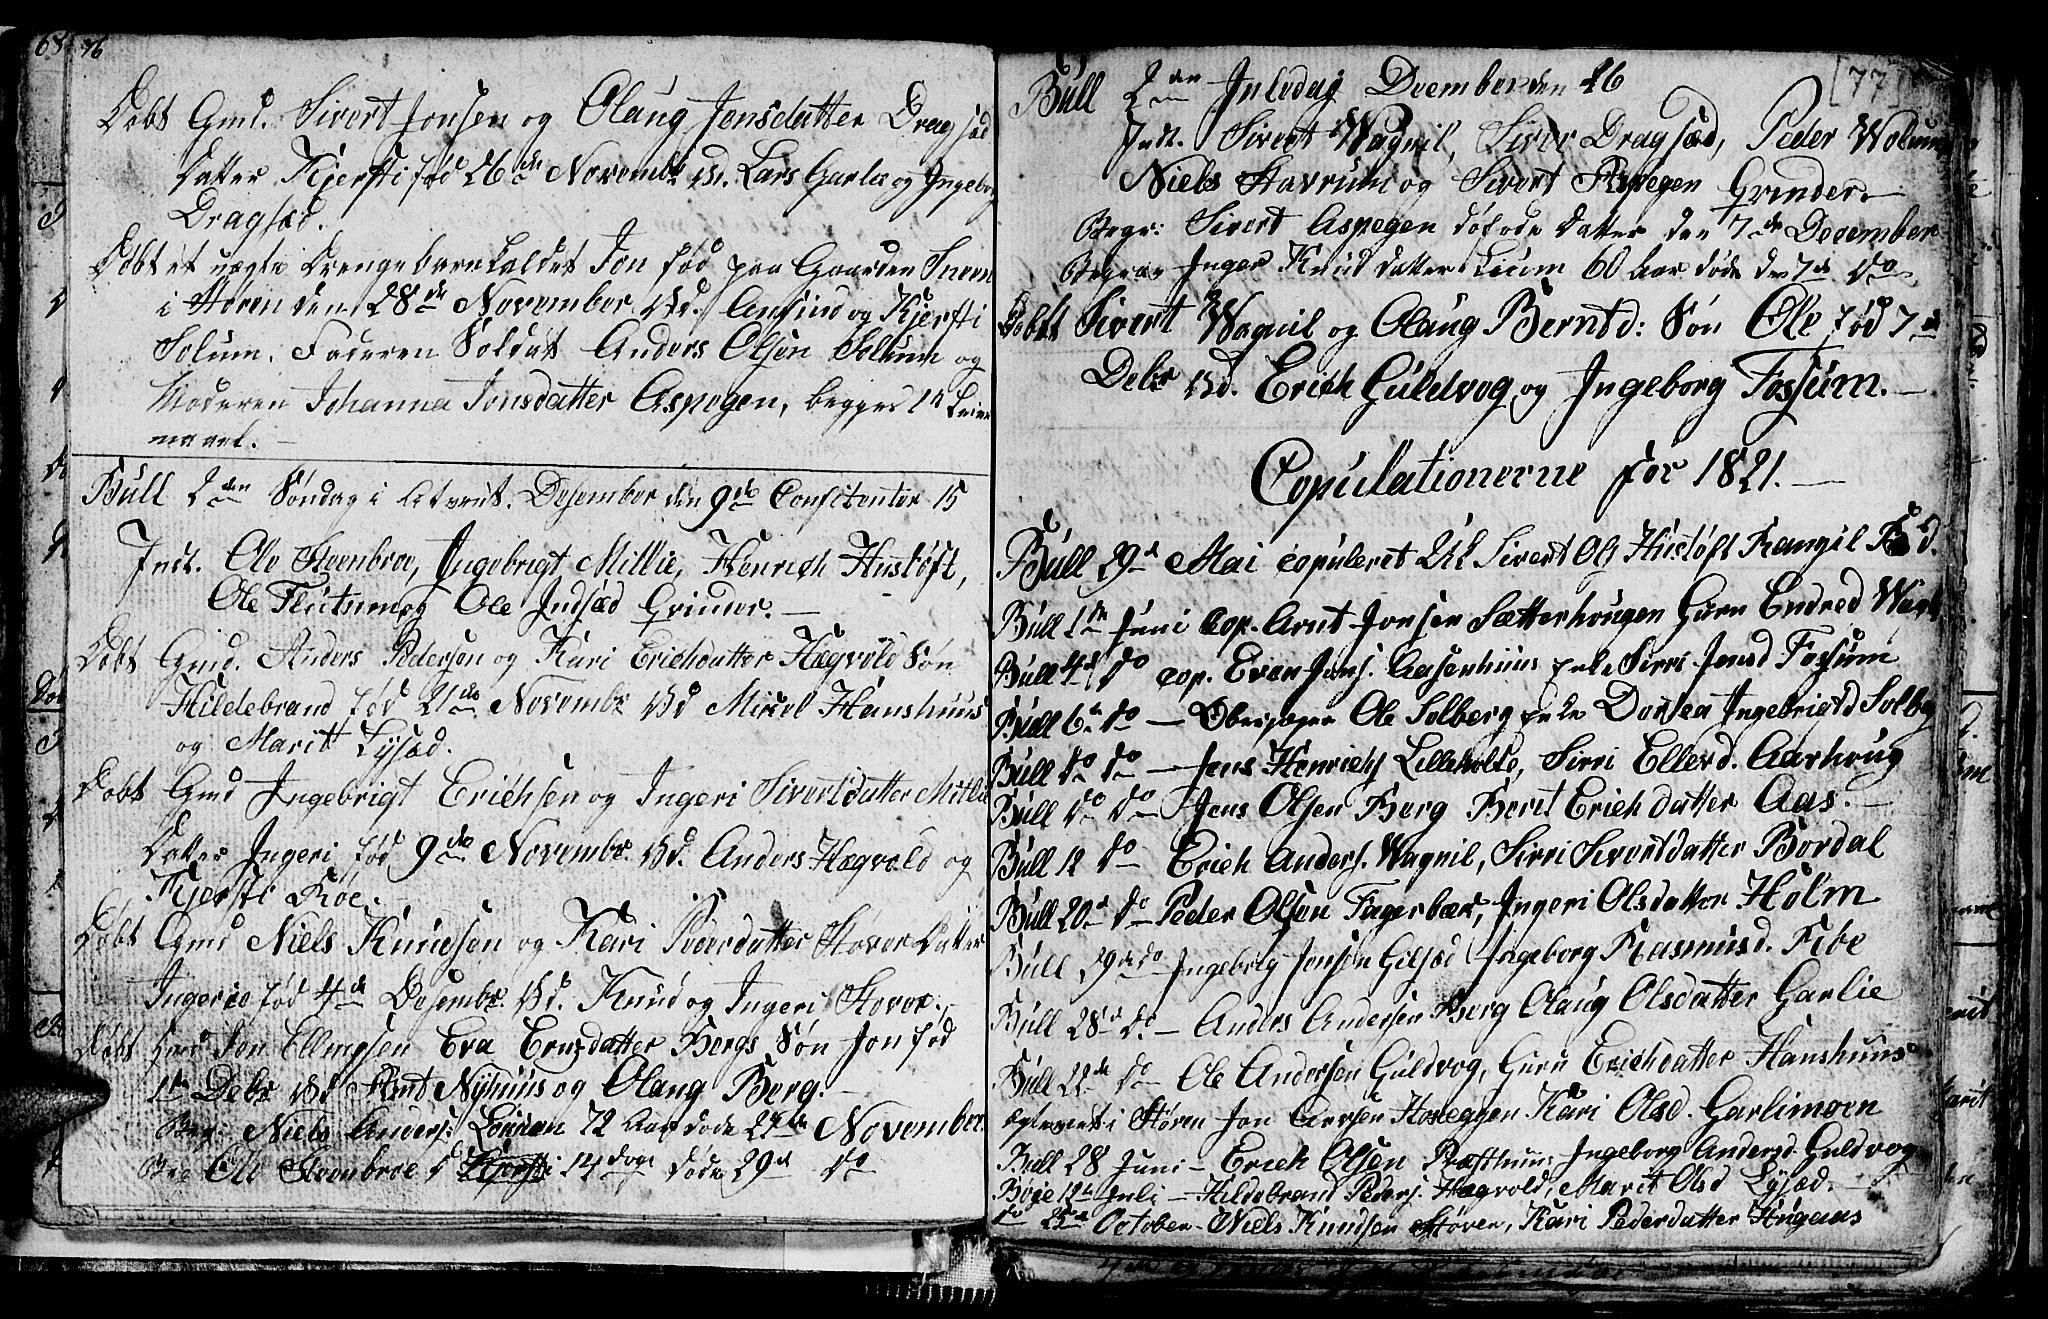 76
Døbt Gmd. Sivert Jonsen og Olaug Jonsdatter Dragsæd
Datter Kjersti fød 26de Novembr Vd. Lars Garlie og Ingeborg
Dragsæd.
Døbt et uægte Drengebarn kaldet Jon fød paa Gaarden
i Støren den 28de November Vd. Anfind og Kjersti
Solum. Faderen Soldat Anders Olsen Solum og
Moderen Johanna Jonsdatter Aspegen, begges 1ste Leier
maael.
Bull 2den Søndag i Advent. Desember den 9de Confitenter 15
Indt. Ole Steenbroe, Ingebrigt Millie, Henrich Hustøft,
Ole Flutum og Ole Indsæd Grinder.
Døbt Gmd. Anders Pedersen og Kari Erichdatter Hægvold Søn
Hildebrand fød 21de Novembr Vd Hanshuus
og Marit Lysæd.
Døbt Gmd Ingebrigt Erichsen og Ingeri Sivertsdatter Millie
Datter Ingeri fød 9de Novembr. Vd. Anders Hægvold og
Kjersti Røe.
Døbt Gmd Niels Knudsen og Kari Pedersdatter Støver Datter
fød 4de Desembr. Vd. Knud og Ingeri Støver.
Døbt Gmd Jon Ellingsen Eva Ernsdatter Bergs Søn Jon fød
1ste Debr Vd Arnt Nyhuus og Olaug Berg.
Begr: Niels Anders: 72 Aar døde November
Beg Ole Steenbroe d Kjersti 14 dage døde 29de do
[77]
Bull 2den Juledag Desember den 26
Indt. Sivert Wagnil, Siver Dragsæd, Peder
Niels Stavrum og Sivert Aspegen Grinder.
Begr: Sivert Aspegen døføde Datter den 7de Desember
Begrav Inger Knuddatter 60 Aar døde den 7de do
Døbtt Sivert Wagnil og Olaug Berntd: Søn Ole fød 7de
Debr Vd. Erich Guldvog og Ingeborg Fossum.
Copulationerne for 1821.
Bull 29d Mai copuleret Sivert Ols Hustøft Rangil
Bull 1de Juni cop. Arnt Jonsen Sætterhougen Guru Endred
Bull 4d do cop. Even Jons. Aasenhuus enke Sirri Jonsd Fossum
Bull 6te do — Ole Solberg enke Dortea Ingebrigtd Solberg
Bull do do — Jens Henrichs Lilleholte, Sirri Ellevd. Aarhoug
Bull do do — Jens Olsen Berg Beret Erichdatter Aas.
Bull 12 do Erich Anders. Wagnil, Sirri Sivertsdatter Bordal
Bull 20d do Peder Olsen Fagerbær, Ingeri Olsdatter Holm
Bull do Jonsen Gilsæd Ingeborg Rasmusd.
Bull 28d do — Anders Andersen Berg Olaug Olsdatter Garlie
Bull 22de do Ole Andersen Guldvog, Guru Erichdatter Hanshuus
i Støren Jon Kari Olsd. Garlimoen
Bull 28 Juni — Erich Olsen Præsthuus Ingeborg Andersd Guldvog
Bøje 12te Juli — Hildebrand Peders. Hægvold, Marit Olsd Lysæd.
do 25de October — Niels Knudsen Støren, Kari Pedersdatter Hugaas